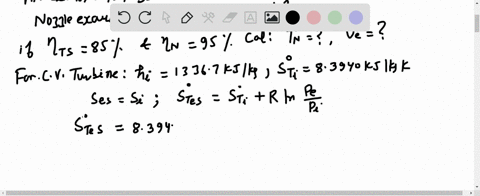 Nozzle
if ηTS = 85% & ηN = 95% Cal: TN = ?, Ve = ?
For C.V. Turbine: hi = 1336.7 KJ/kg, S°Ti = 8.3940 KJ/kg K
Ses = Si ; S°Tes = S°Ti + R ln Pe/Pi
S°Tes = 8.394